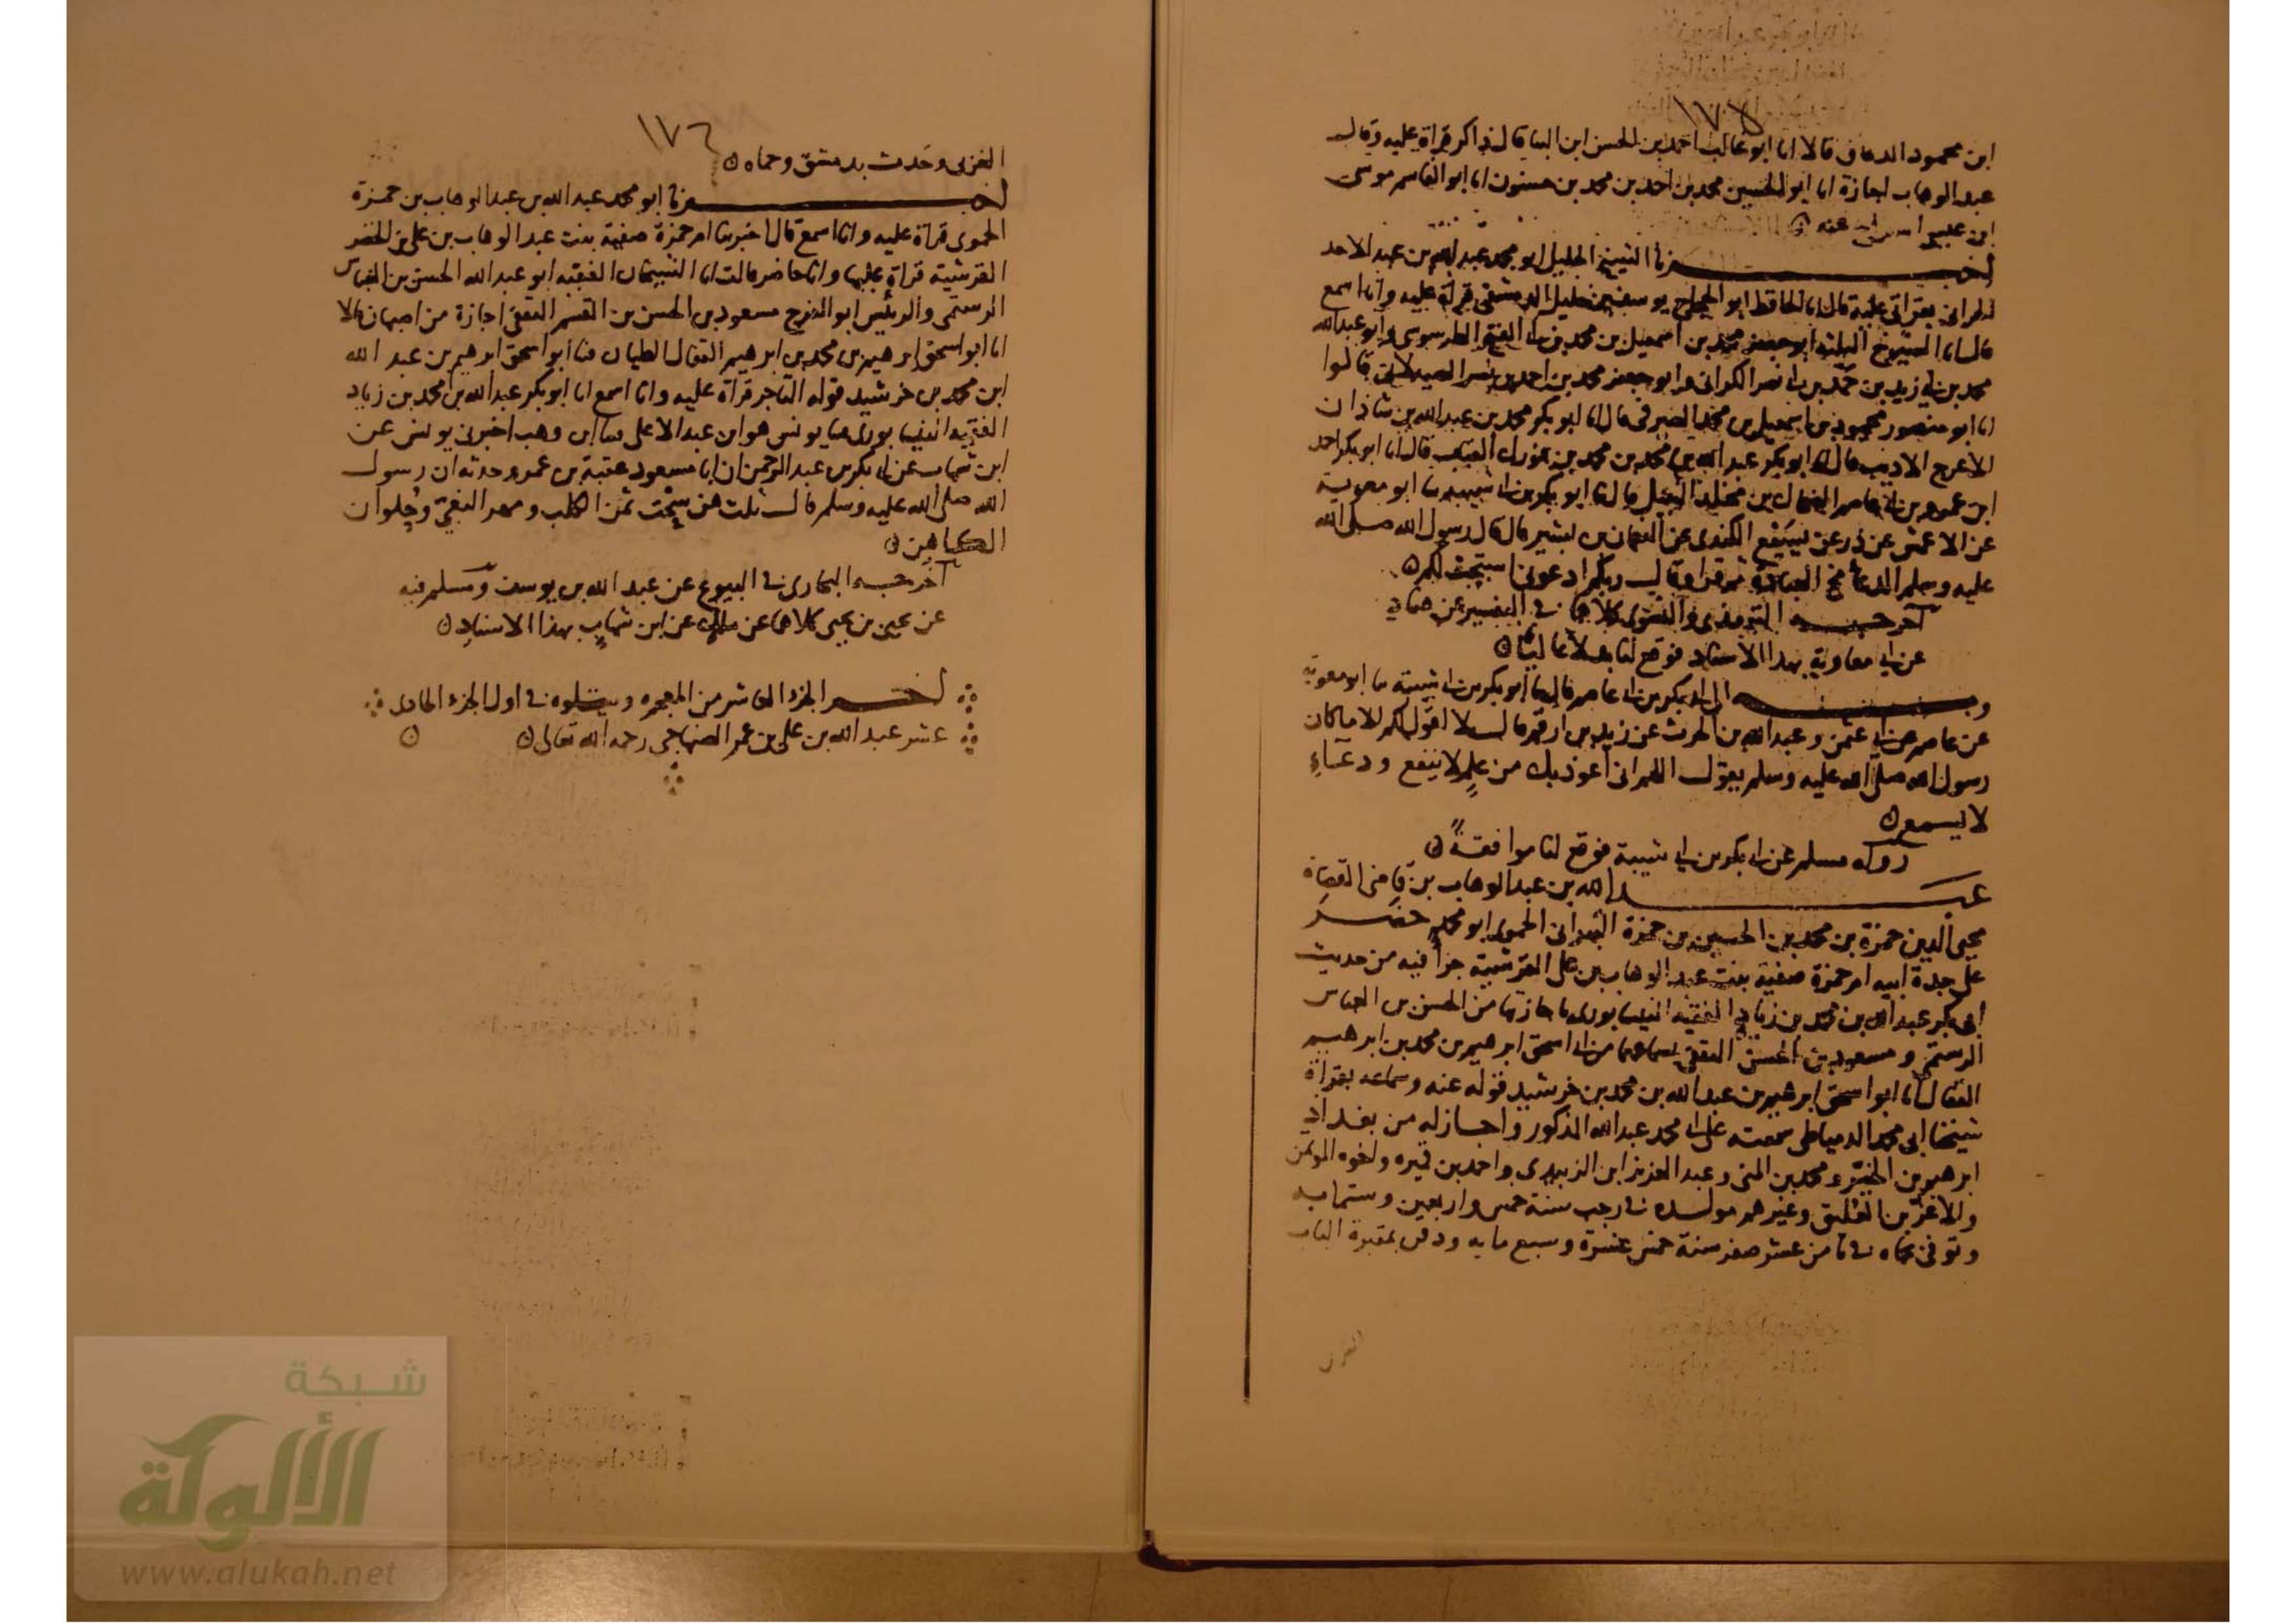 ١٧٥
ابن محمود الدقاق قالا انا ابو غالب احمد بن الحسن ابن البنا قال ذاكر قراة عليه وقال
عبد الوهاب اجازة انا ابو الحسين محمد بن احمد بن محمد بن حسنون انا ابو القاسم موسى
ابن عيسى عنه
اخبرنا الشيخ الجليل ابو محمد عبد الله بن عبد الاحد
بقراتي عليه قال انا الحافظ ابو الحجاج يوسف بن خليل الدمشقي قراة عليه وانا اسمع
قال انا الشيوخ الثلثه ابو جعفر محمد بن اسمعيل بن محمد بن ابي الفتح الطرسوسي وابو عبد الله
محمد بن ابي زيد بن حمد بن ابي نصر الكراني وابو جعفر محمد بن احمد بن نصر الصيدلاني قالوا
انا ابو منصور محمود بن اسمعيل بن محمد الصيرفي قال انا ابو بكر محمد بن عبد الله بن شاذان
الاعرج الاديب قال انا ابو بكر عبد الله بن محمد بن محمد بن فورك القباب قال انا ابو بكر احمد
ابن عمرو بن ابي عاصم الضحاك بن مخلد النبيل قال ثنا ابو بكر بن ابي شيبه ثنا ابو معوية
عن الاعمش عن ذر عن يسيع الكندي عن النعمان بن بشير قال قال رسول الله صلى الله
عليه وسلم الدعا العبادة ثم قرا وقال ربكم ادعوني استجب لكم
اخرجه الترمذي والنسوي كلاهما في التفسير عن هناد
عن ابي معاوية بهذا الاسناد فوقع لنا بدلا عاليا
وبه الى ابي بكر بن ابي عاصم قال ثنا ابو بكر بن ابي شيبة ثنا ابو معوية
عن عاصم عن ابي عثمن وعبد الله بن الحرث عن زيد بن ارقم قال لا اقول لكم الا ما كان
رسول الله صلى الله عليه وسلم يقول اللهم اني اعوذ بك من علم لا ينفع ودعاء
لا يسمع
رواه مسلم عن ابي بكر بن ابي شيبة فوقع لنا موافقة
عبد الله بن عبد الوهاب بن قاضي القضاة
محيي الدين حمزة بن محمد بن الحسين بن حمزة البهراني الحموي ابو محمد حضر
على جدة ابيه ام حمزة صفية بنت عبد الوهاب بن علي القرشية جزأ فيه من حديث
ابي بكر عبد الله بن محمد بن زياد الفقيه النيسابوري باجازتها من الحسن بن العباس
الرستمي ومسعود بن الحسن الثقفي بسماعهما من ابي اسحق ابرهيم بن محمد بن ابرهيم
القفال انا ابو اسحق ابرهيم بن عبد الله بن محمد بن خرشيد قوله عنه وسماعه بقراة
شيخنا ابي محمد الدمياطي سمعته على ابي محمد عبد الله المذكور واجاز له من بغداد
ابرهيم بن الخير ومحمد بن المنى وعبد العزيز ابن الزبيدي واحمد بن قميره واخوه الموتمن
والاعز بن العليق وغيرهم مولده في رجب سنة خمس واربعين وستمايه
وتوفي بحماه في ثامن عشر صفر سنة خمس عشرة وسبع مايه ودفن بمقبرة الباب
الغربي
١٧٦
الغربي وحدث بدمشق وحماه
اخبرنا ابو محمد عبد الله بن عبد الوهاب بن حمزة
الحموي قراة عليه وانا اسمع قال اخبرتنا ام حمزة صفية بنت عبد الوهاب بن علي بن الخضر
القرشية قراة عليها وانا حاضر قالت انا الشيخان الفقيه ابو عبد الله الحسن بن العباس
الرستمي والرئيس ابو الفرج مسعود بن الحسن بن القسم الثقفي اجازة من اصبهان قالا
انا ابو اسحق ابرهيم بن محمد بن ابرهيم القفال الطيان ثنا ابو اسحق ابرهيم بن عبد الله
ابن محمد بن خرشيد قوله التاجر قراة عليه وانا اسمع انا ابو بكر عبد الله بن محمد بن زياد
الفقيه النيسابوري ثنا يونس هو ابن عبد الاعلى ثنا ابن وهب اخبرني يونس عن
ابن شهاب عن ابي بكر بن عبد الرحمن ان ابا مسعود عقبة بن عمرو حدثه ان رسول
الله صلى الله عليه وسلم قال ثلث هن سحت ثمن الكلب ومهر البغي وحلوان
الكاهن
اخرجه البخاري في البيوع عن عبد الله بن يوسف ومسلم فيه
عن يحيى بن يحيى كلاهما عن ملك عن ابن شهاب بهذا الاسناد
اخر الجزء العاشر من المعجم ويتلوه في اول الجزء الحادي
عشر عبد الله بن علي بن عمر الصنهاجي رحمه الله تعالى
شبكة
الألوكة
www.alukah.net